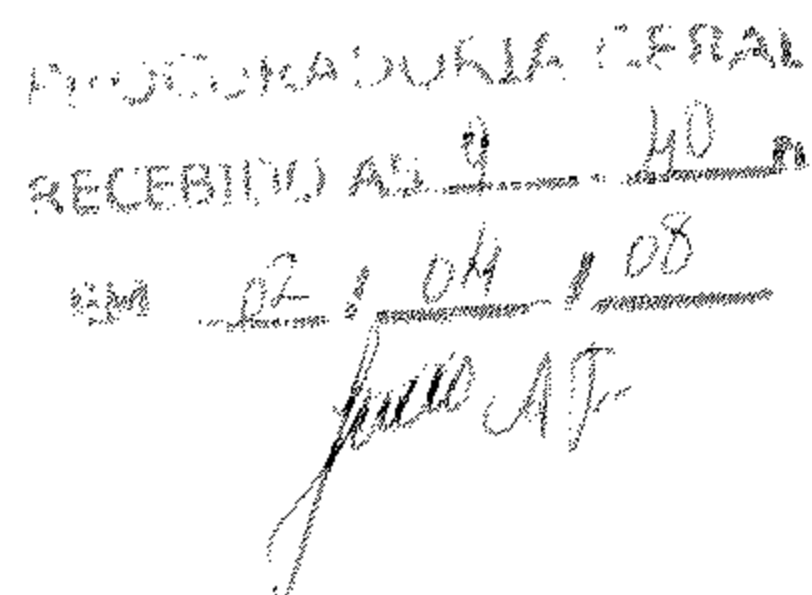 PROCURADURIA GERAL
RECEBIDO AS 9 40
EM 02 / 04 / 08